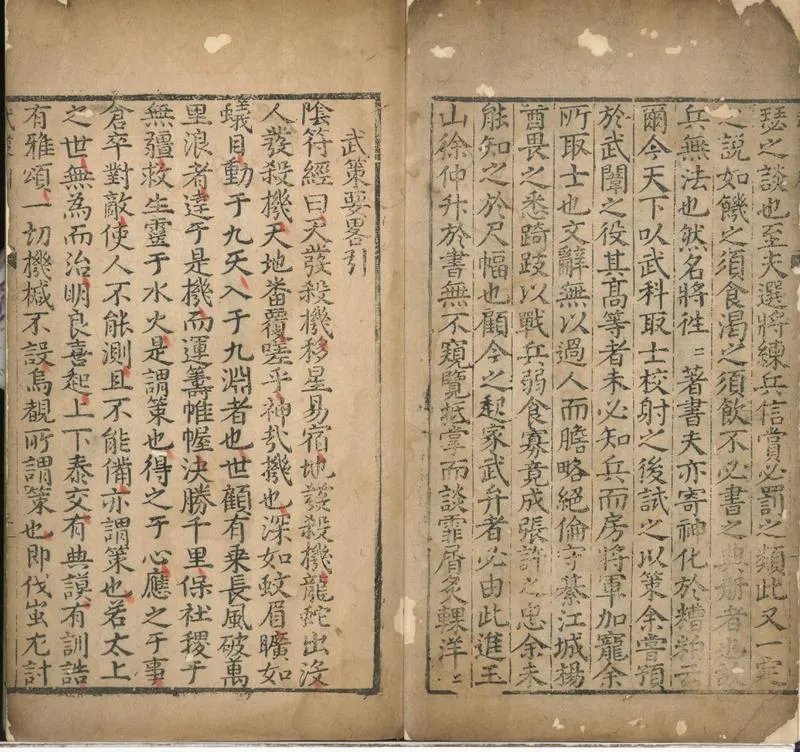 瑟之談也至夫選將練兵信賞必罰之類此又一定
之說如饑之須食渴之須飲不必書之典册者也談
兵無法也然名將徃〻著書夫亦寄神化於糟粕云
爾今天下以武科取士校射之後試之以策余嘗預
於武闈之役其髙等者未必知兵而房將軍加寵余
所取士也文辭無以過人而膽略絕倫守綦江城楊
酋畏之悉踦跂以戰兵弱食寡竟成張許之忠余未
能知之於尺幅也顧今之起家武弁者必由此進王
山徐仲升於書無不窺覽抵掌而談霏屑炙輠洋〻
武策要畧引
陰符經曰天發殺機移星易宿地發殺機龍蛇出沒
人發殺機天地畨覆嗟乎神㢤機也深如蚊眉曠如
蟻目動于九天入于九淵者也世顧有乗長風破萬
里浪者達于是機而運籌帷幄決勝千里保社稷于
無疆救生靈于水火是謂策也得之于心應之于事
倉卒對敵使人不能測且不能備亦謂策也若太上
之世無為而治明良喜起上下泰交有典謨有訓誥
有雅頌一切機械不設烏覩所謂策也即伐蚩尤計